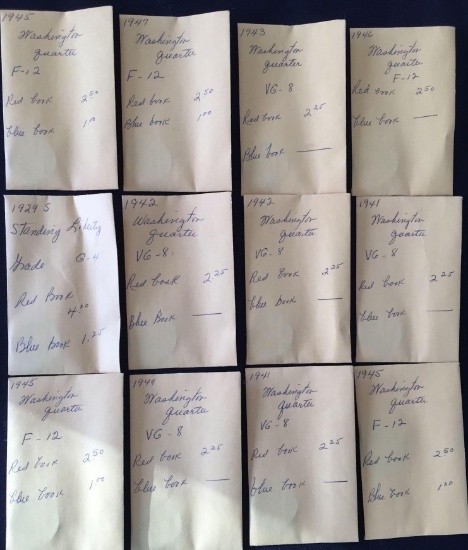 1945
Washington
Quarter
F-12
Red book 2.50
blue book 1.00
1947
Washington
Quarter
F-12
Red book 2.50
Blue book 1.00
1943
Washington
Quarter
VG-8
Red book 2.25
Blue book —
1946
Washington
Quarter
F-12
Red book 2.50
blue book —
1929 S
Standing Liberty
Grade G-4
Red Book
4.00
Blue Book 1.25
1942
Washington
Quarter
VG-8
Red book 2.25
Blue Book —
1942
Washington
Quarter
VG-8
Red Book 2.25
blue Book —
1941
Washington
Quarter
VG-8
Red book 2.25
blue book —
1945
Washington
Quarter
F-12
Red book 2.50
blue book 1.00
Washington
Quarter
VG-8
Red book 2.25
blue book —
1941
Washington
Quarter
VG-8
Red book 2.25
blue book —
1945
Washington
Quarter
F-12
Red book 2.50
Blue book 1.00